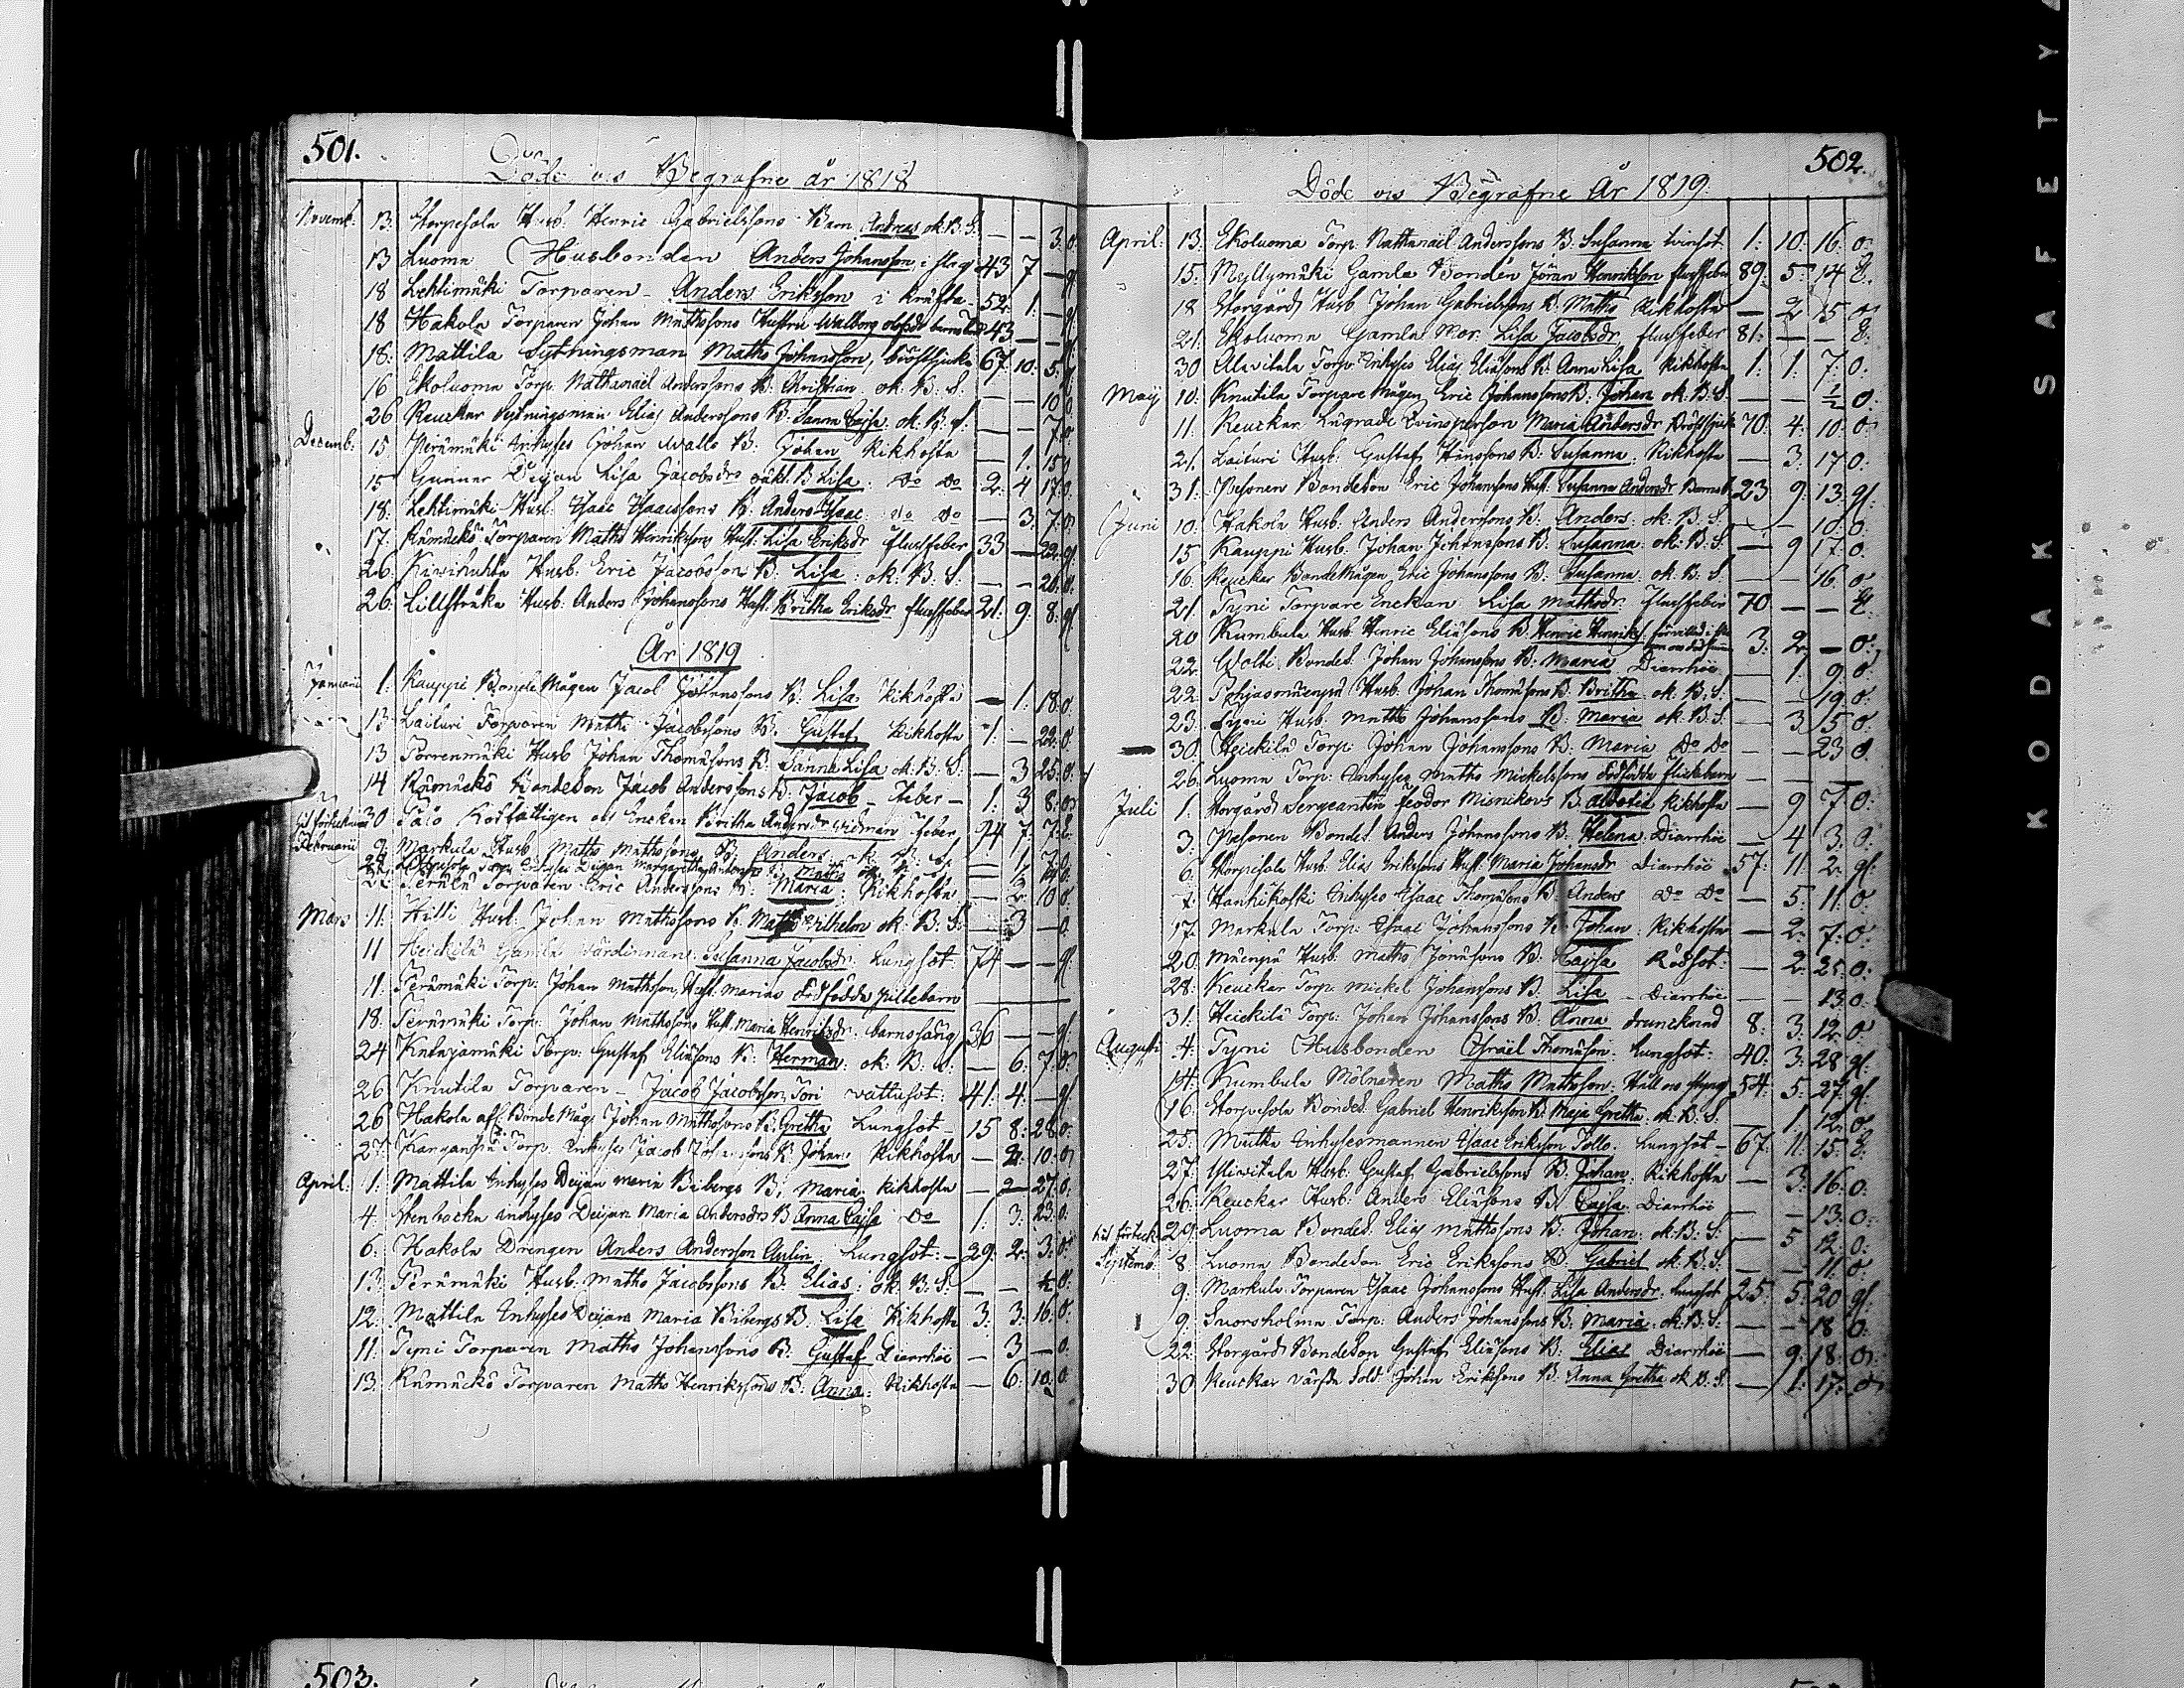 501.
Döde och Begrafne år 1818
Novemb: 13. Storpesola Husb: Henric Gabrielssons Barn Andreas ok: B. S: — — 3. o.
13 Luoma Husbonden Anders Johansson, i slag 43 7 — g.
18 Lehtimäki Torparen Anders Eriksson i kräfta 52. 1. — g.
18 Hakola Torparen Johan Mathssons Hustru Walborg 43 — — g.
18. Mattila Sytningsman Maths Johansson, bröstsjuka 67. 10. 5. g.
16 Ekoluoma Torp. Nathanaël Anderssons B: Christian ok. B. S. — — 10 o
26 Keuckar Sytningsman Elias Anderssons B. Sanna Cajsa ok. B. S. — — 7. o.
Decemb: 15 Perämäki Inhyses Johan Walls B: Johan Kikhosta — 1. 15 o
15 Gunnar Deijan Lisa Jacobsdrs oäkt. B Lisa. Do Do 2. 4 17. o.
18. Lehtimäki Husb: Isaac Isaacssons B: Anders Isaac. Do Do — 3. 7. o.
17. Rämäckö Torparen Maths Henrikssons Hust. Lisa Eriksdr flussfeber 33 — 22. g.
26. Kivikuhta Husb. Eric Jacobsson B: Lisa. ok: B. S. — — 26. o.
26. Lillstråka Husb: Anders Johanssons Hust: Britha Eriksdr flussfeber 21. 9. 8. g.
År 1819
Januarii 1. Kauppi Bonde Mågen Jacob Johanssons B: Lisa Kikhosta — 1. 18. o.
13. Laituri Torparen Maths Jacobssons B. Gustaf Kikhosta 1. — 22. o.
13 Porrenmäki Husb Johan Thomassons B: Sanna Lisa ok. B. S. — 3 25. o.
14 Rämäckö Bondeson Jacob Anderssons B: Jacob — feber — 1. 3 8. o.
30 Salo Rotfattigen och Enckan Britha Andersdr Widman feber 94 7. 7. E.
Februarii 9. Markula Husb. Maths Mathssons B. Anders ok. B. S. — 1. 7. o.
22. Ternelä Torparen Eric Anderssons B: Maria. Kikhosta — 2. 10 o.
Mars 11. Hilli Husb. Johan Mathssons B. Maths Wilhelm ok. B. S. — 3 — o.
11 Heickilä Gamla Värdinnan Susanna Jacobsdr. Lungsot. 74 — — g.
11. Perämäki Torp: Johan Mathsson, Hust. Marias dödfödda Piltebarn
18. Perämäki Torp. Johan Mathssons Hust. Maria Henriksdr. barnssäng 36 — — g.
24 Torp: Gustaf Eliassons B: Herman. ok. B. S. — 6. 7. o.
26 Knutila Torparen Jacob Jacobsson Tori vattusot: 41. 4. — g.
26 Hakola afl. Bonde Måg. Johan Mathssons B. Gretha Lungsot 15 8. 28. o.
27. Kangaspä Torp. Inhyses Jacob Johanssons B Johan Kikhosta — 2. 10. o.
April. 1. Mattila Inhyses Deijan Maria Bibergs B: Maria. Kikhosta — 2 27. o.
4. Stenbacka Inhyses Deijan Maria Andersdrs B Anna Cajsa Do 1. 3. 23. o.
6. Hakola Drengen Anders Andersson Aulin Lungsot: — 29. 2. 3. o.
13. Perämäki Husb: Maths Jacobssons B. Elias. ok. B. S. — — ½ o.
12. Mattila Inhyses Deijans Maria Bibergs B. Lisa Kikhosta 3. 3. 16. o.
11. Tyni Torparen Maths Johanssons B: Gustaf Diarrhöe — 3 — o.
13. Rämäckö Torparen Maths Henrikssons B. Anna. Kikhosta — 6. 10. o
502.
Döde och Begrafne År 1819.
April: 13. Ekoluoma Torp. Nathanaël Anderssons B. Susanna tvinsot 1. 10. 16. o.
15. Myllymäki Gamla Bonden Jöran Henriksson flussfeber 89. 5. 14 E.
18 Storgård Husb Johan Gabrielssons B. Maths Kikhosta — 2 15 o.
21. Ekoluoma Gamla Mor. Lisa Jacobsdr. flussfeber 81. — — E.
30 Alavitala Torp. Inhyses Elias Eliassons B. Anna Lisa Kikhosta 1. 1. 7. o.
Maij 10. Knutila Torpare Mågen Eric Johanssons B. Johan ok. B. S. — — ½ o.
11. Keuckar Qvinsperson Maria Andersdr Bröstsjuka 70. 4. 10. o.
21. Laituri Husb: Gustaf Hanssons B. Susanna. Kikhosta — 3. 17 o.
31. Pesonen Bondeson Eric Johanssons Hust. Susanna Andersdr Barnsb. 23 9. 13. g.
Juni 10. Hakola Husb. Anders Anderssons B. Anders. ok. B. S. — — 10. o.
15 Kauppi Husb. Johan Johanssons B. Susanna. ok. B. S. — 9 17. o.
16. Keuckar Bonde Mågen Eric Johanssons B: Susanna. ok. B. S. — — 16. o.
21. Tyni Torpare Enckan Lisa Mathsdr. flussfeber 70 — — E.
20 Kumbula Husb. Henric Eliassons B. Henric 3. 2. — o.
22. Wolti Bondes. Johan Johanssons B. Maria Diarrhöe — 1. 9. o.
22. Pohjasmäenpä Husb. Johan Thomassons B. Britha. ok. B. S. — — 19. o.
23. Tyni Husb. Maths Johanssons B. Maria ok. B. S. — 3 5. o.
30. Heickilä Torp: Johan Johanssons B: Maria Do Do — — 23 o.
26. Luoma Torp. Inhyses Maths Mickelssons dödfödda flickebarn
Juli 1. Storgård Sergeanten Feodor Misnikovs B. Kikhosta — 9 7 o.
3. Pesonen Bondes. Anders Johanssons B. Helena. Diarrhöe — 4 3. o.
6. Storpesola Husb. Elias Erikssons Hust. Maria Johansdr Diarrhöe 57. 11. 2. g.
7. Hanhikoski Inhyses Isaac Thomassons B. Anders Do Do — 5. 11. o.
17. Markula Torp. Isaac Johanssons B. Johan. Kikhosta — 2. 7. o.
20. Mäenpä Husb. Maths Jonassons B. Cajsa Rödsot. — 2. 25. o.
28. Keuckar Torp. Mickel Johanssons B. Lisa — Diarrhöe — — 13. o.
31. Heickilä Torp. Johan Johanssons B. Anna drunknad 8. 3. 12. o.
Augusti 4. Tyni Husbonden Israël Thomasson. Lungsot. 40. 3. 28 g.
14. Kumbula Mölnaren Maths Mathsson. Håll och styng 54. 5. 27. g.
16. Storpesola Bondes. Gabriel Henriksson B. Maja Gretha. ok. B. S. — 1. 12. o.
25. Mutka Inhysesmannen Isaac Eriksson Tollo. Lungsot — 67. 11. 15. E.
27. Ylivitala Husb. Gustaf Gabrielssons B. Johan. Kikhosta — 3. 16. o.
26. Keuckar Husb. Anders Eliassons B. Cajsa. Diarrhöe — — 13. o.
29. Luoma Bondes. Elias Mathssons B. Johan. ok. B. S. — 5 12. o.
Septemb: 8. Luoma Bondeson Eric Erikssons B. Gabriel ok. B. S. — — 11. o.
9. Markula Torparen Isaac Johanssons Hust. Lisa Andersdr. Lungsot 25. 5. 20 g.
9. Snorsholma Torp. Anders Johanssons B. Maria. ok. B. S. — — 18 o.
22. Storgård Bondeson Gustaf Eliassons B. Elias Diarrhöe — 9. 18. o.
30. Keuckar värfda Sold. Johan Erikssons B. Anna Gretha ok B. S. — 1. 17. o.
503.
KODAK SAFETY